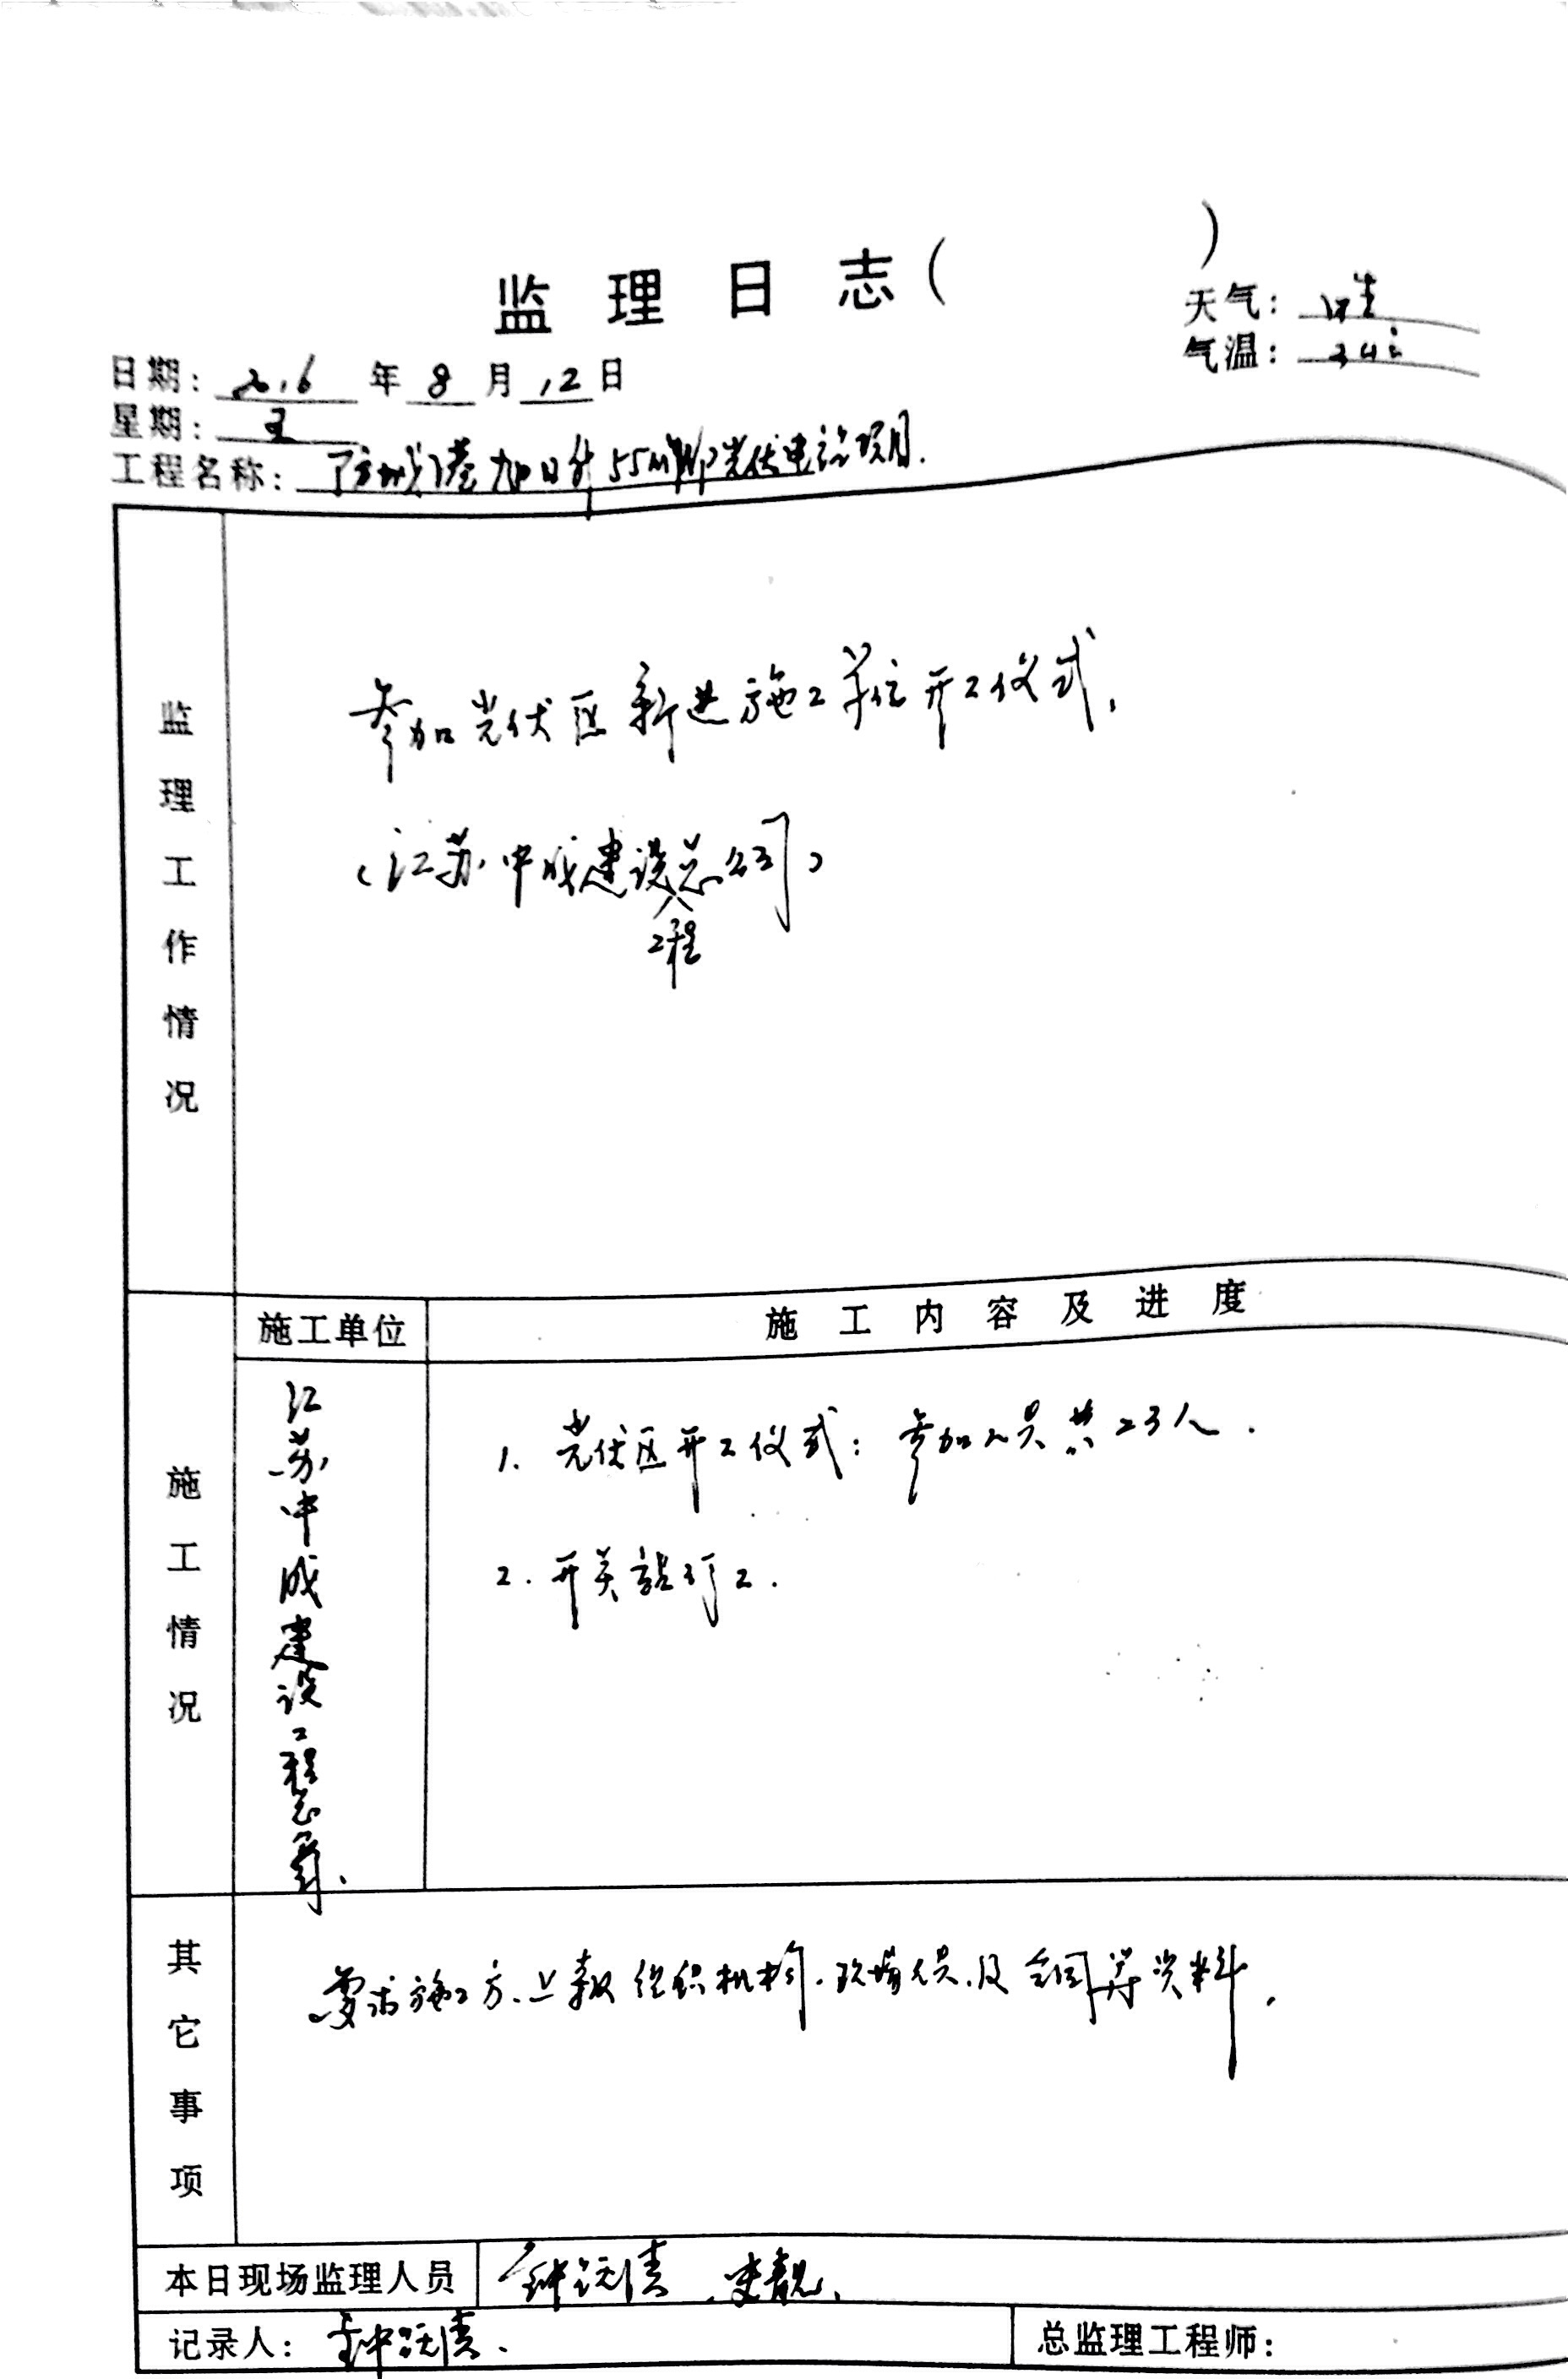 监理日志（ ）
天气：晴
气温：34℃
日期：2016年8月12日
星期：五
工程名称：防城港旭日升55MWp光伏电站项目.
监理工作情况
参加光伏区新进施工单位开工仪式.
（江苏中成建设工程总公司）
施工单位
施工内容及进度
施工情况
江苏中成建设工程总公司.
1. 光伏区开工仪式：参加人员共23人.
2. 开关站停工.
其它事项
要求施工方上报组织机构.现场人员.及合同等资料.
本日现场监理人员
记录人：
总监理工程师：